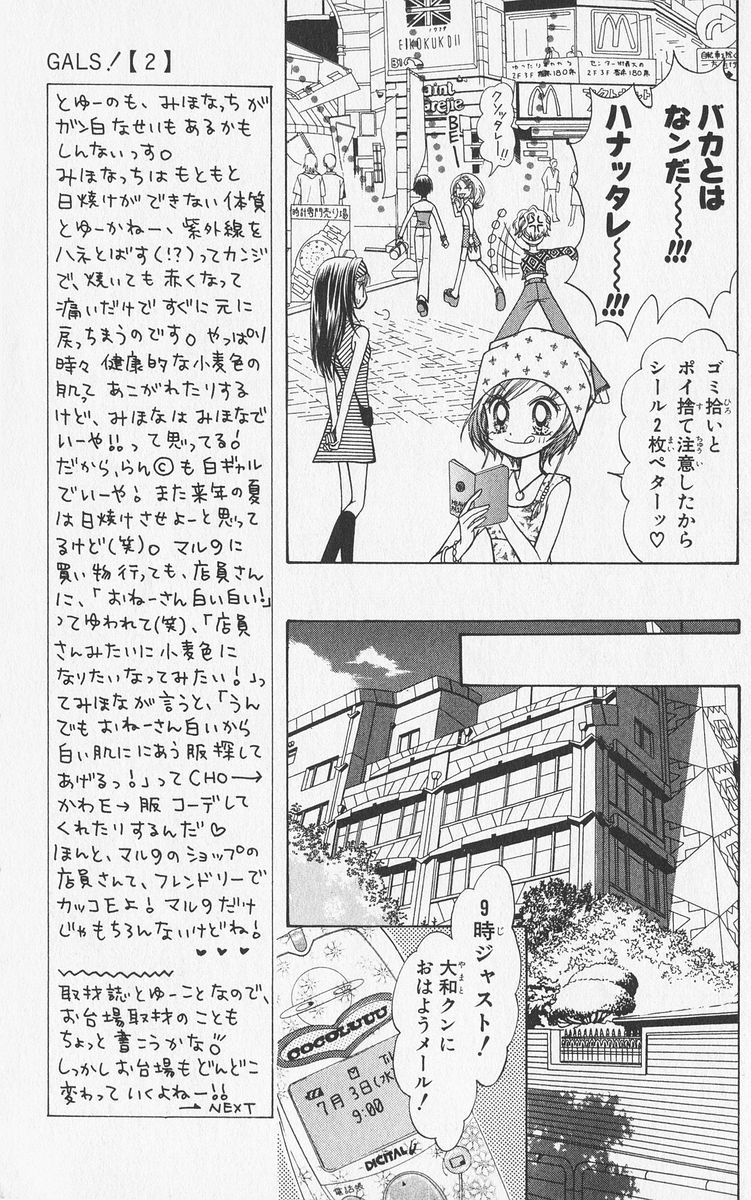 バカとは
なンだ〜〜〜!!!
ハナッタレ〜〜!!!
クソッタレー!!
1979
EIKOKUDO
Bill
ゆったりおかわり
2F 3F 客席180席
センター街最大の
2F 3F 客席180席
BE
時計専門売り場
ゴミ拾いと
ひろ
ポイ捨て注意したから
すちゅうい
シール2枚ペターッ♡
まい
9時ジャスト!
じ
大和クンに
やまと
おはようメール!
COCOLUUU
7月3日(水)
9:00
DIGITAL
電話帳
GALS!【2】
とゆーのも、みほなっちが
ガン白なせいもあるかも
しんないっす。
みほなっちはもともと
日焼けができない体質
とゆーかねー、紫外線を
ハネとばす(!?)ってカンジ
で、焼いても赤くなって
痛いだけですぐに元に
戻っちまうのです。やっぱり
時々健康的な小麦色の
肌って あこがれたりする
けど、みほなはみほなで
いーや!!って思ってる!
だから、らん©も白ギャル
でいーや! また来年の夏
は日焼けさせよーと思って
るけど(笑)。マル9に
買い物行っても、店員さん
に、「おねーさん白い白い!」
ってゆわれて(笑)、「店員
さんみたいに小麦色に
なりたいなってみたい!」っ
てみほなが言うと、「うん
でもおねーさん白いから
白い肌ににあう服探して
あげるっ!」ってCHO→
かわE→服コーデして
くれたりするんだ♡
ほんと、マル9のショップの
店員さんて、フレンドリーで
カッコEよ! マル9だけ
じゃもちろんないけどね!
♥♥♥
取材誌とゆーことなので、
お台場取材のことも
ちょっと書こうかな!!
しっかしお台場もどんどこ
変わっていくよねー!!
→NEXT